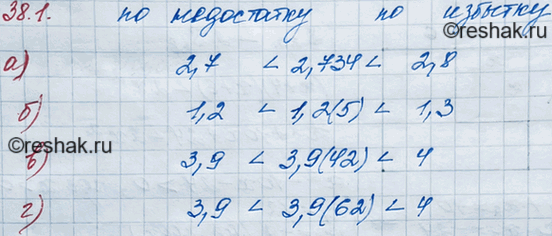 38.1. по недостатку по избытку
а) 2,7 < 2,734 < 2,8
©reshak.ru
б) 1,2 < 1,2(5) < 1,3
©reshak.ru
в) 3,9 < 3,9(42) < 4
г) 3,9 < 3,9(62) < 4
©reshak.ru